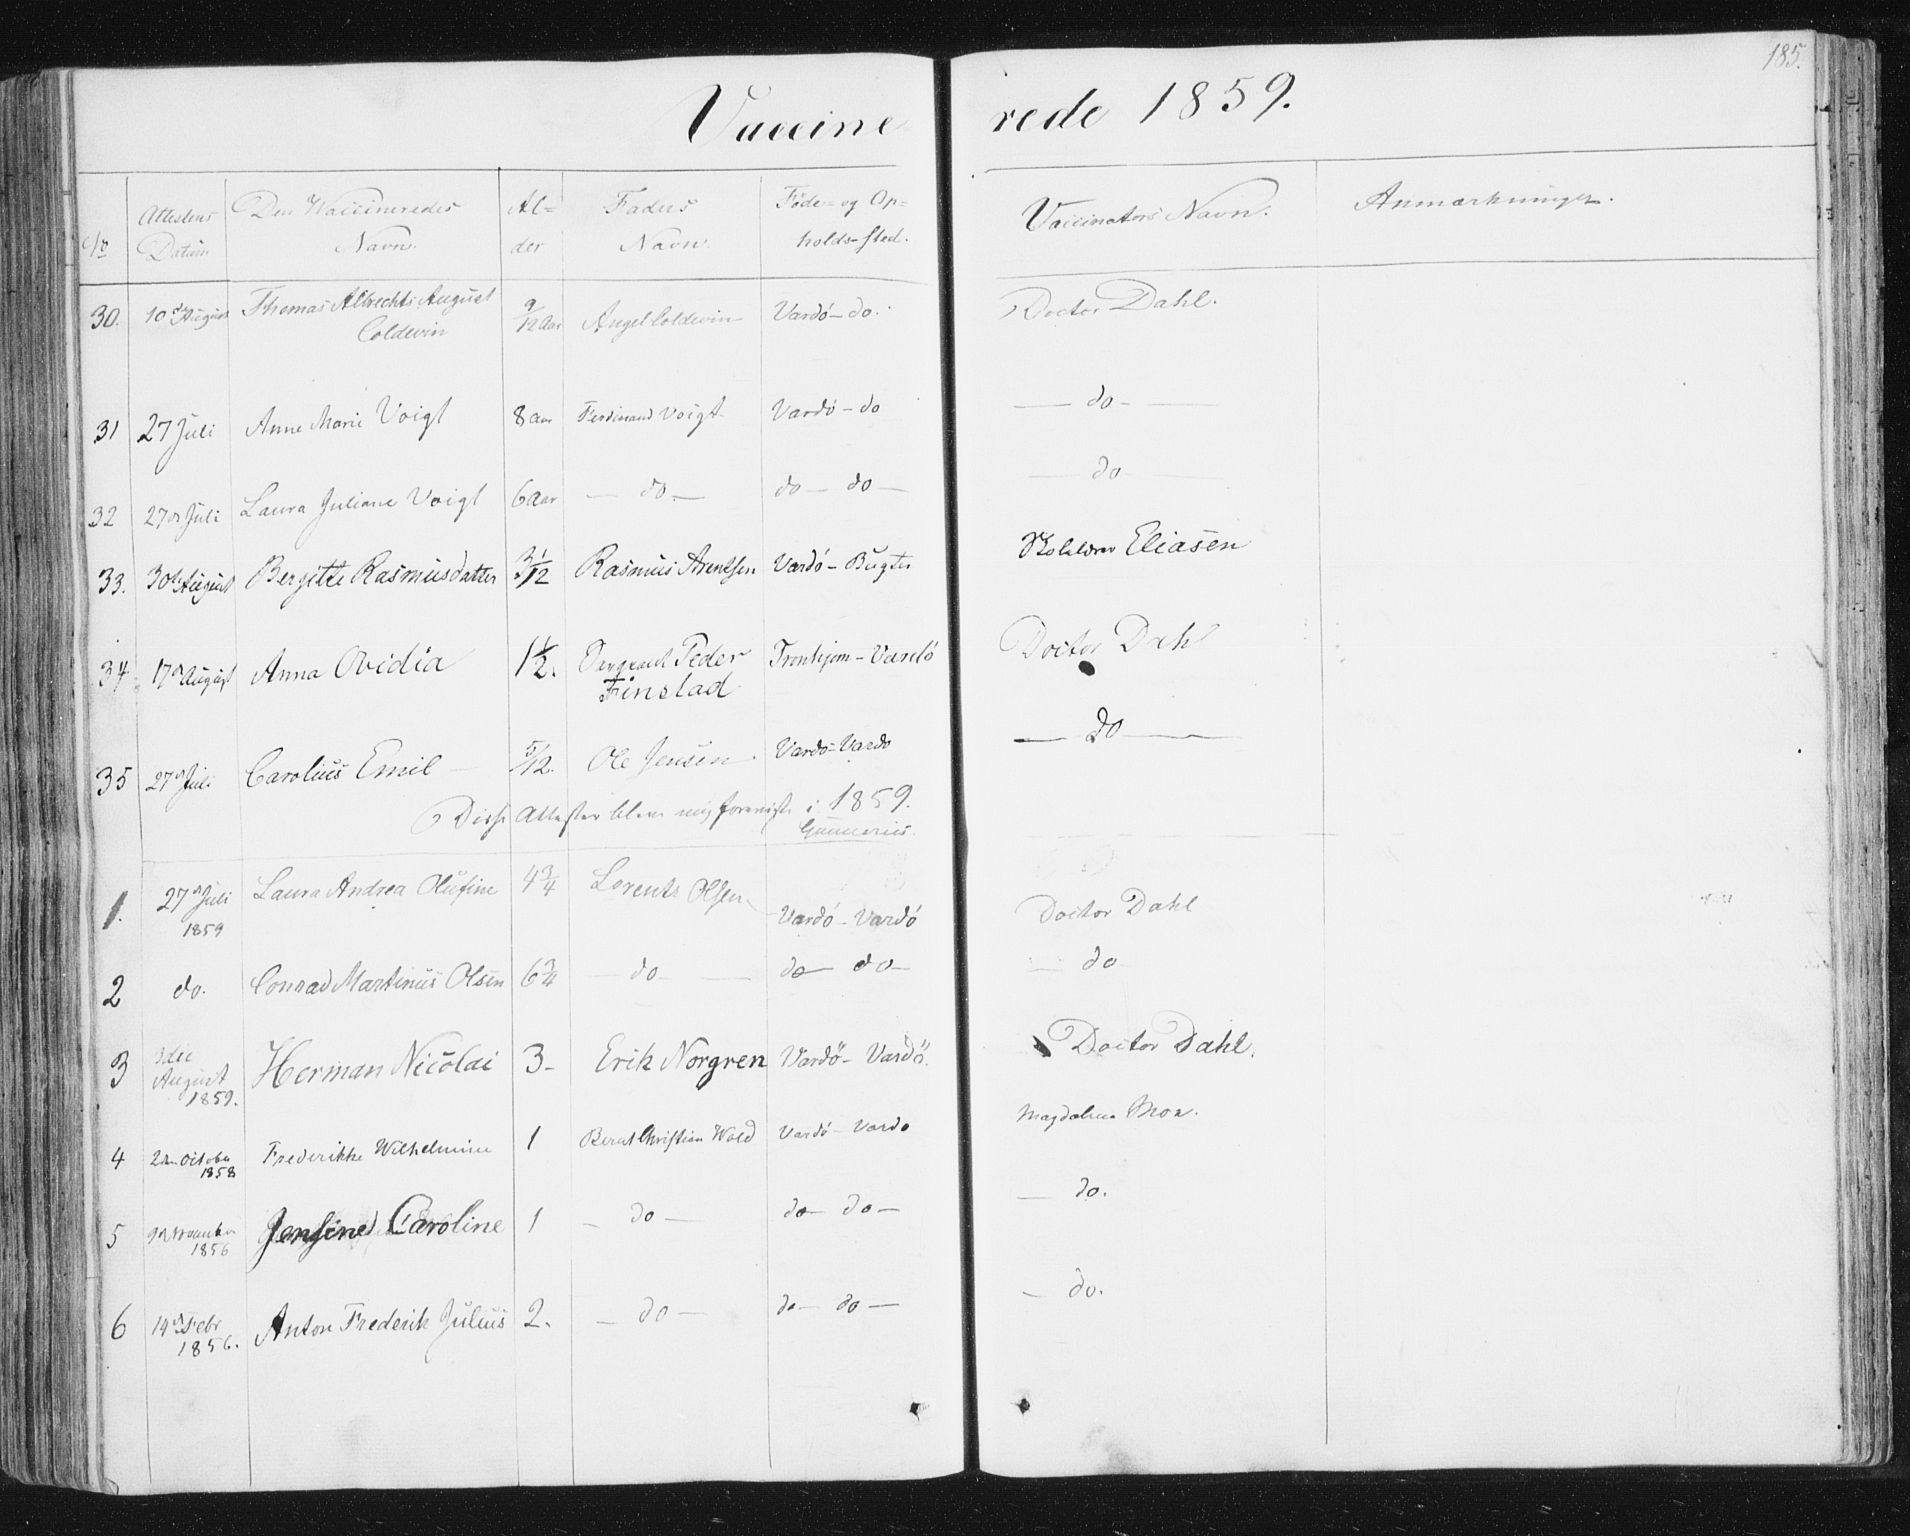 185.
Vaccine rede 1859.
No Attestens Datum Den Vaccineredes Navn. Al= der Faders Navn. Føde- og Op= holds-sted. Vaccinators Navn. Anmærkninger.
30. 10de August Thomas Albrechts August Coldevin 9/12 Aar Angel Coldevin Vardö - do. Doctor Dahl.
31 27 Juli Anne Marie Voigt 8 Aar Ferdinand Voigt Vardö - do — do —
32 27de Juli Laura Juliane Voigt 6 Aar — do — do — do — — do —
33. 30te August Bergitte Rasmusdatter 3 1/12 Rasmus Arentsen Vardö - Bugten Eliasen
34 17de August Anna Ovidia 1 1/2. Sergeant Peder Finstad Tronhjem - Vardö Doctor Dahl
35 27de Juli Carolius Emil 5/12. Ole Jensen Vardö - Vardö — do —
Disse Attester bleve mig foreviste i 1859.
Gunnerius.
1. 27de Juli 1859 Laura Andrea Olufine 4 3/4 Lorents Olsen Vardö - Vardö Doctor Dahl
2 do. Conrad Martinus Olsen 6 3/4 — do — do — do — — do
3 3die August 1859. Herman Nicolai 3 - Erik Norgren Vardö - Vardö. Doctor Dahl.
4 2den October 1858 Frederikke Wilhelmine 1 Bernt Christian Wold Vardö - Vardö Magdalena Moe.
5 9de November 1856 Jensine Caroline 1 — do — do — do — — do.
6 14de Febr 1856. Anton Frederik Julius 2. — do — do — do — — do.